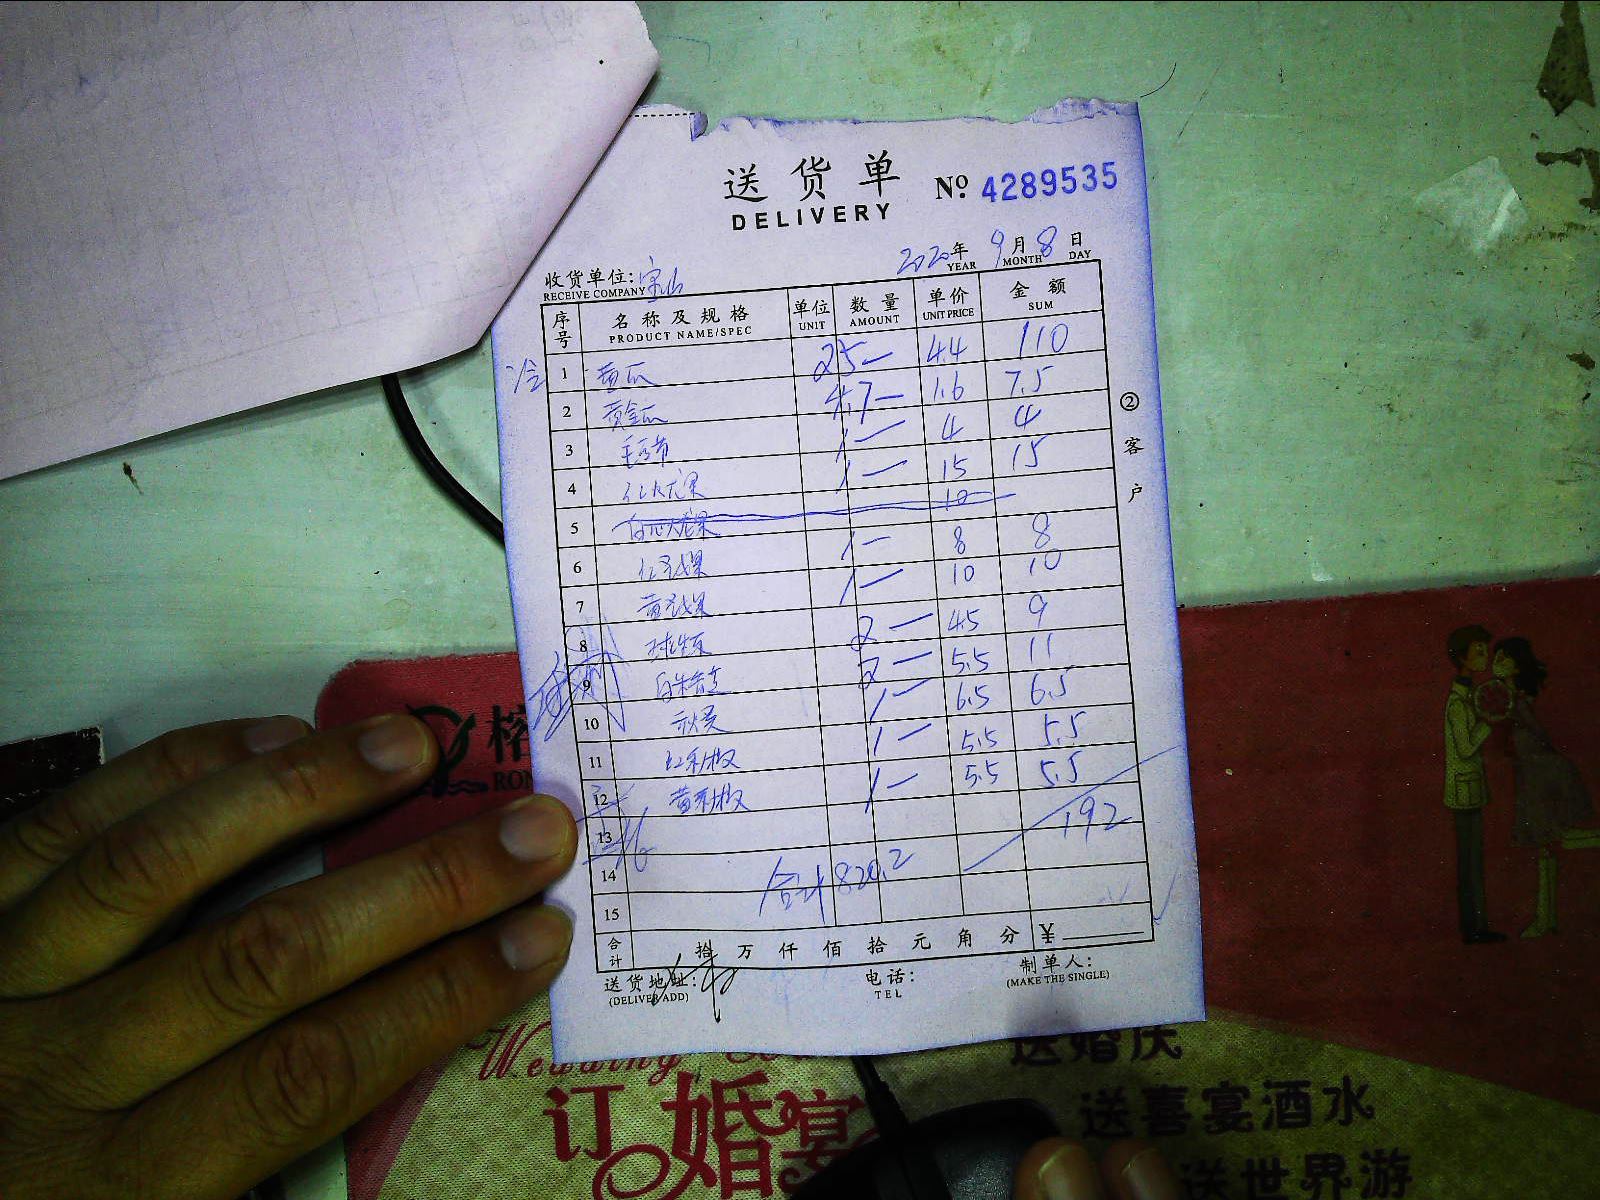 送货单 No. 4289535
DELIVERY
2020年 9月 8日
YEAR MONTH DAY
收货单位: 宝山
RECEIVE COMPANY
序号 名称及规格 单位 数量 单价 金额
PRODUCT NAME/SPEC UNIT AMOUNT UNIT PRICE SUM
冷 1 黄瓜 25— 4.4 110
2 黄金瓜 4.7— 1.6 7.5
3 1— 4 4
4 1— 15 15
5 10
6 1— 8 8
7 1— 10 10
8 2— 4.5 9
9 2— 5.5 11
10 秋葵 1— 6.5 6.5
11 红彩椒 1— 5.5 5.5
12 黄彩椒 1— 5.5 5.5
13 192
14 合计 820.2
15
合计 拾 万 仟 佰 拾 元 角 分 ¥
送货地址: 电话: 制单人:
(DELIVER ADD) TEL (MAKE THE SINGLE)
②客户
榕
RON
Wedding
订婚宴
送婚庆
送喜宴酒水
送世界游